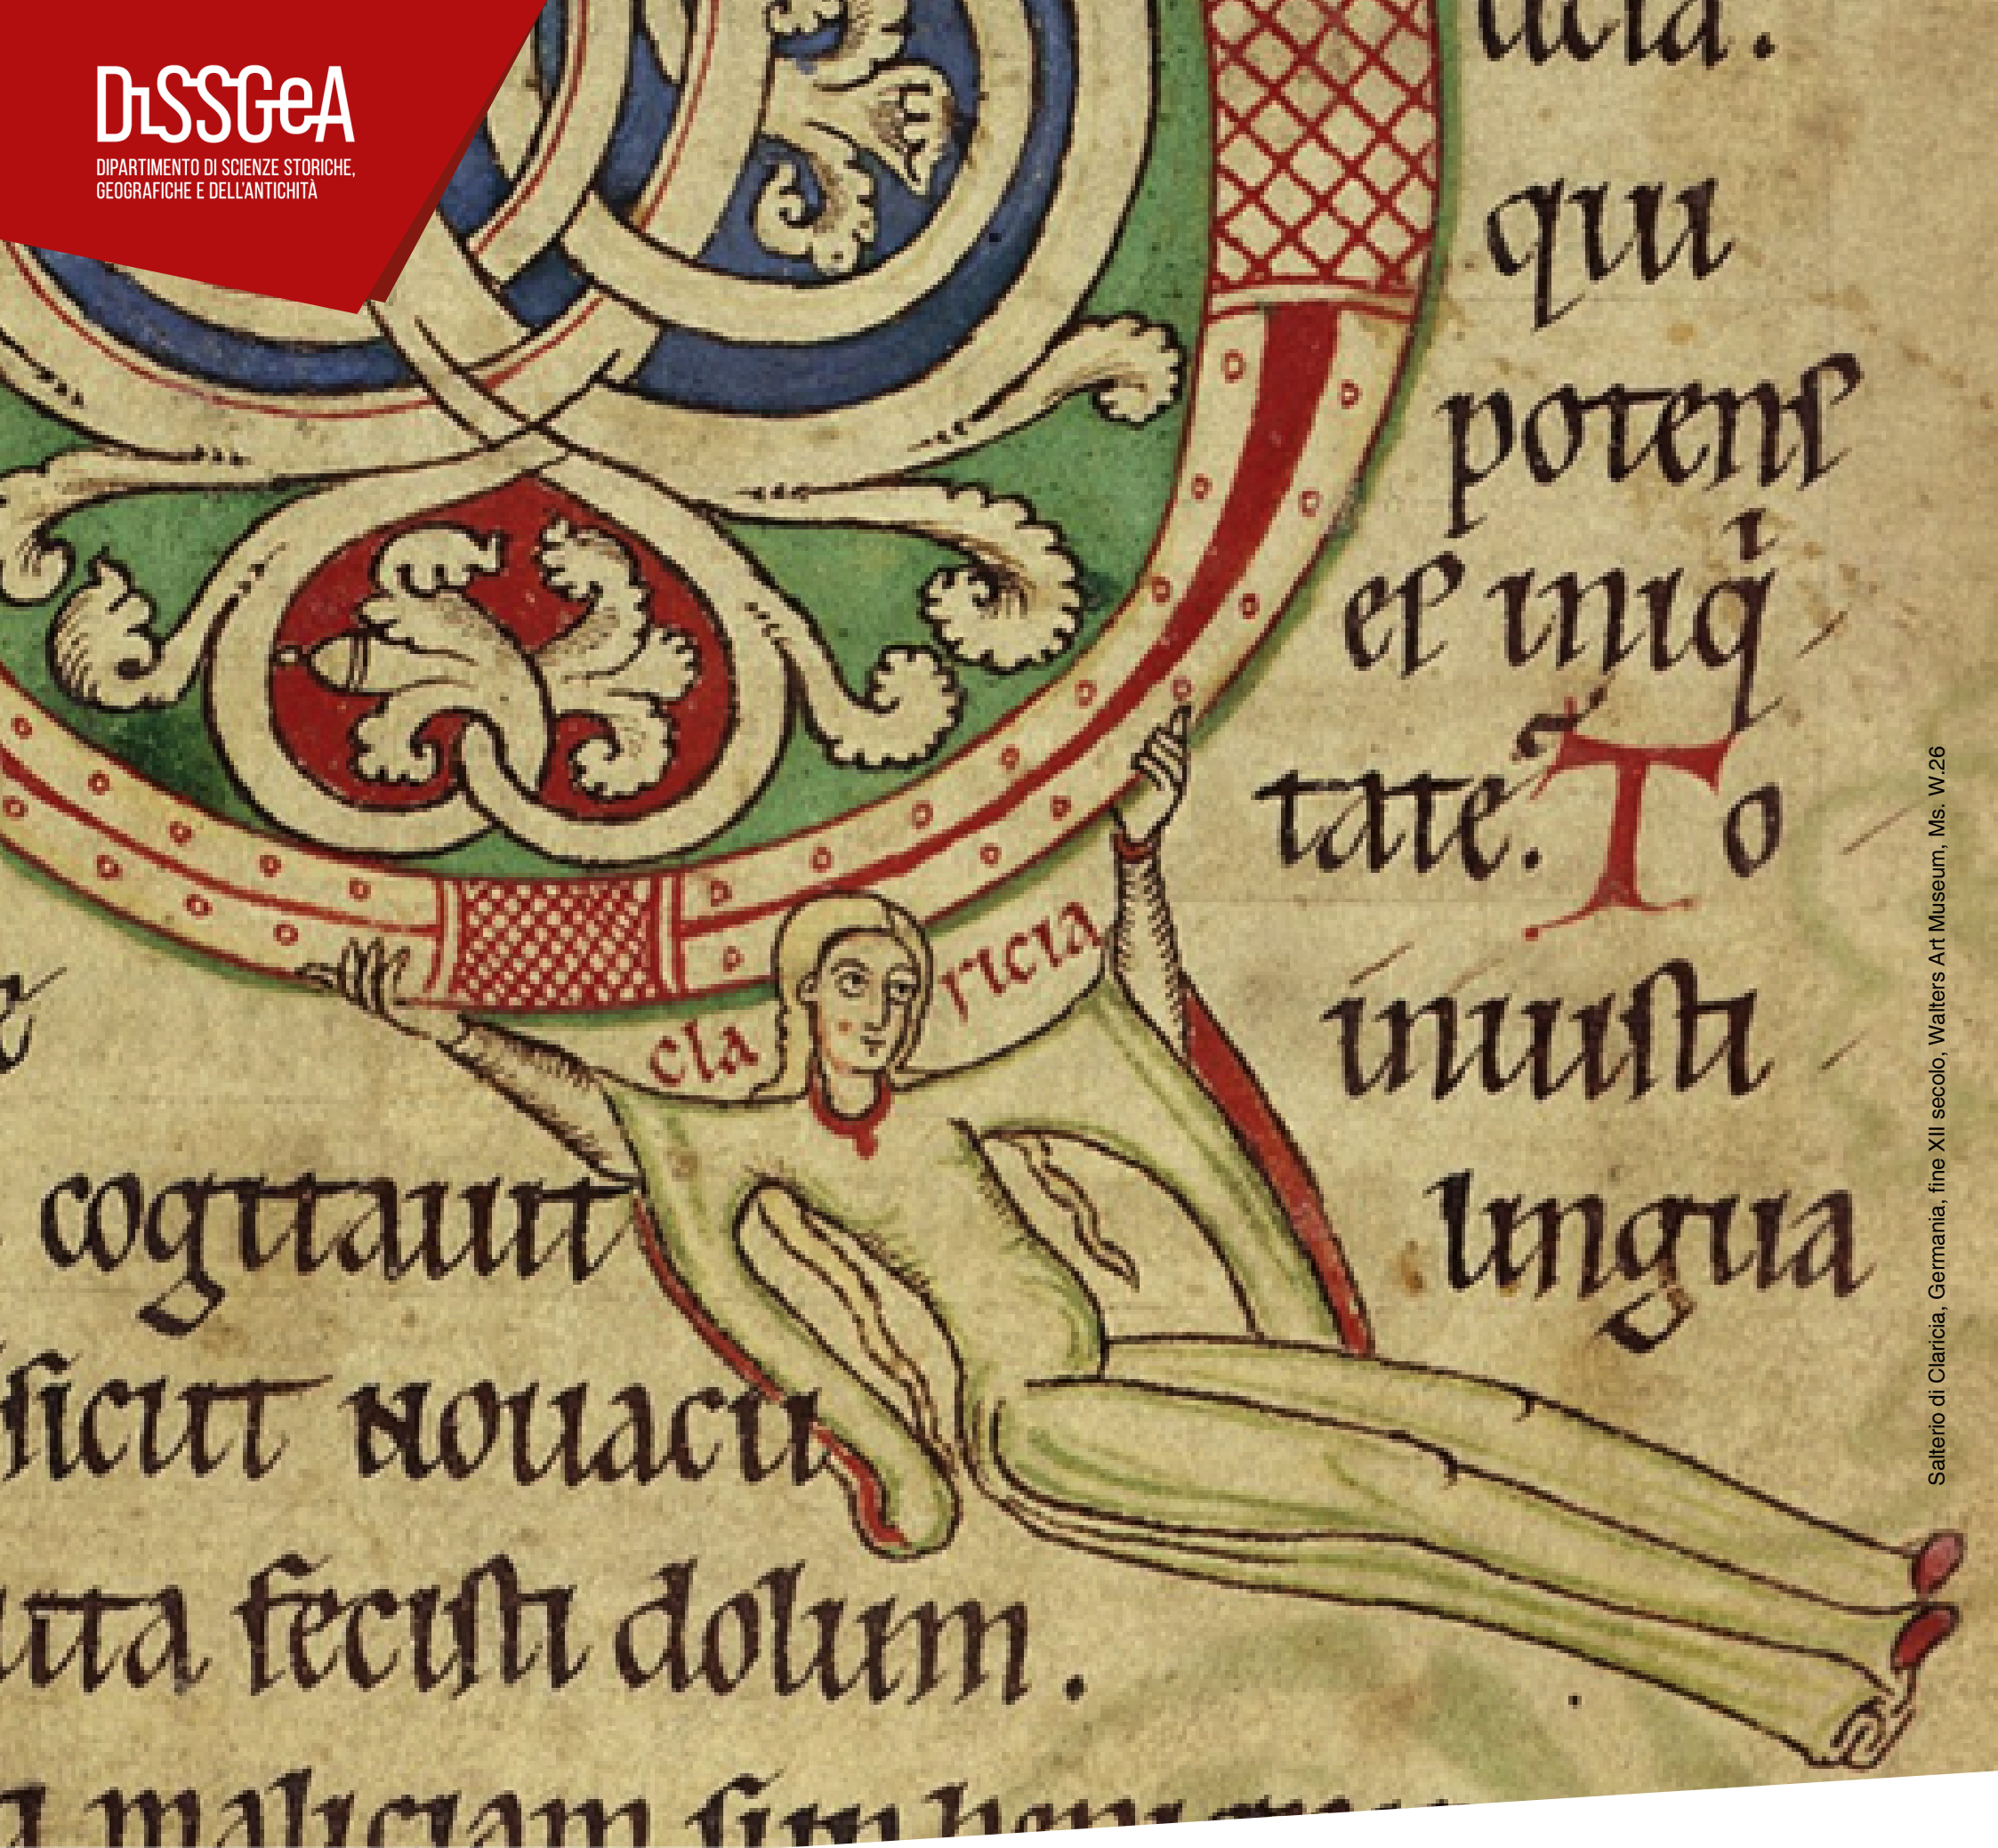 DiSSGeA
DIPARTIMENTO DI SCIENZE STORICHE,
GEOGRAFICHE E DELL'ANTICHITÀ
qui
potenſ
eſ iniqͥ
tate. To
cla ricia
iniuſti
cogitauit lingua
ſicut Nouacu
uta feciſti dolum.
maliciam
Salterio di Claricia, Germania, fine XII secolo, Walters Art Museum, Ms. W.26